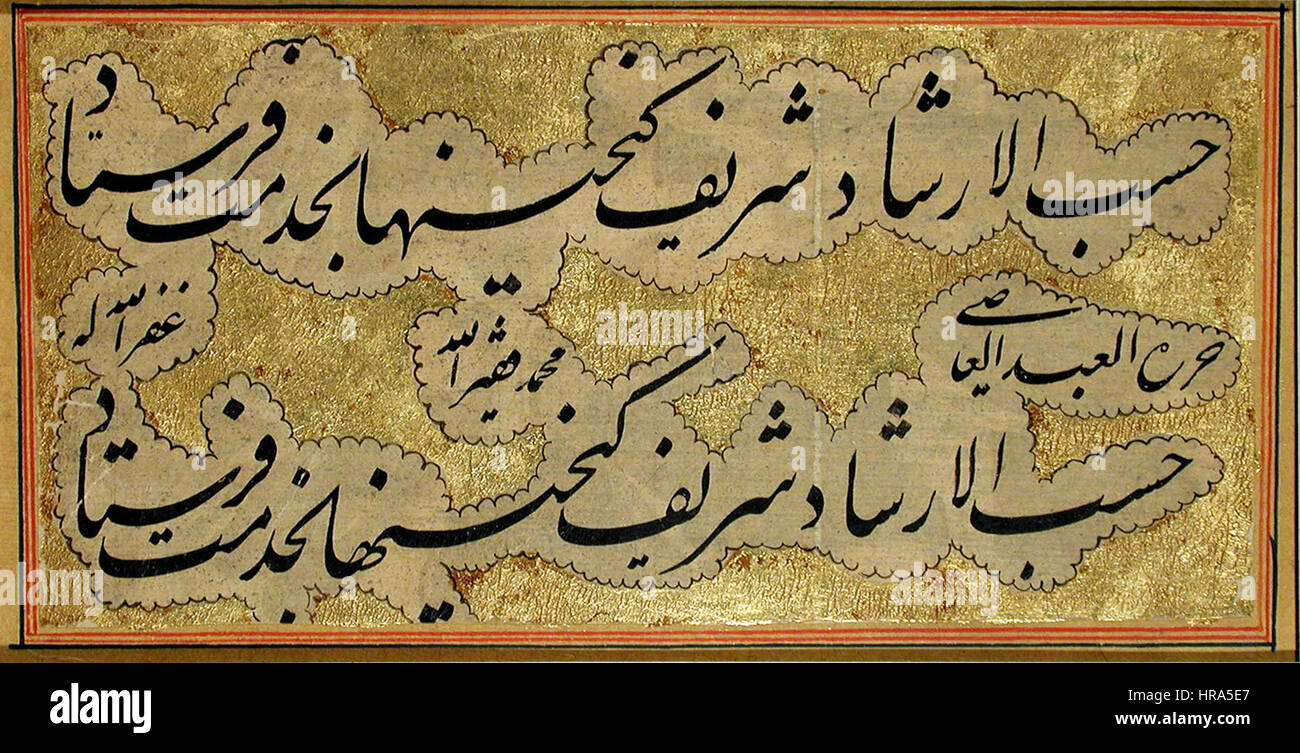 حسب الارشاد شریف بخدمت فرستاد
حرره العبد العاصی محمد فقیر الله غفر الله له
حسب الارشاد شریف بخدمت فرستاد
alamy stock photo
HRA5E7
www.alamy.com